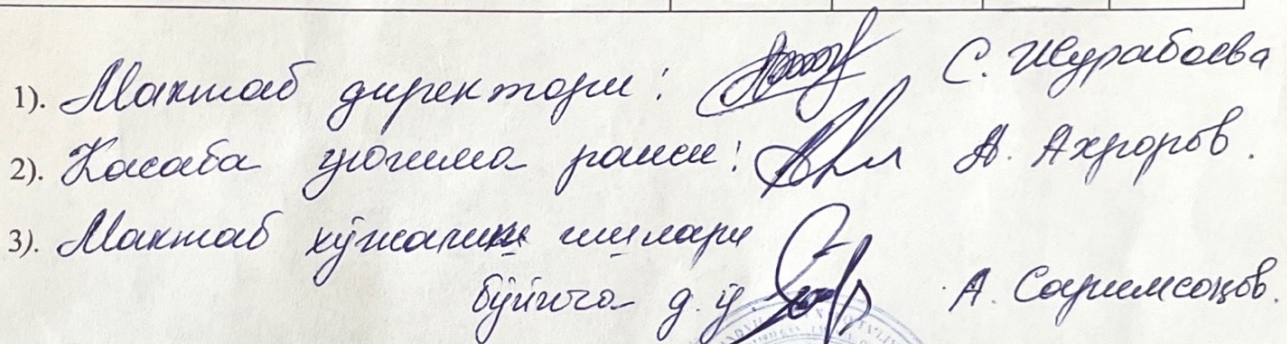 1). Мактаб директори: С. Журабаева
2). Касаба уюшма раиси: А. Ахроров.
3). Мактаб хўжалик ишлари
бўйича д.ў. А. Саримсоқов.